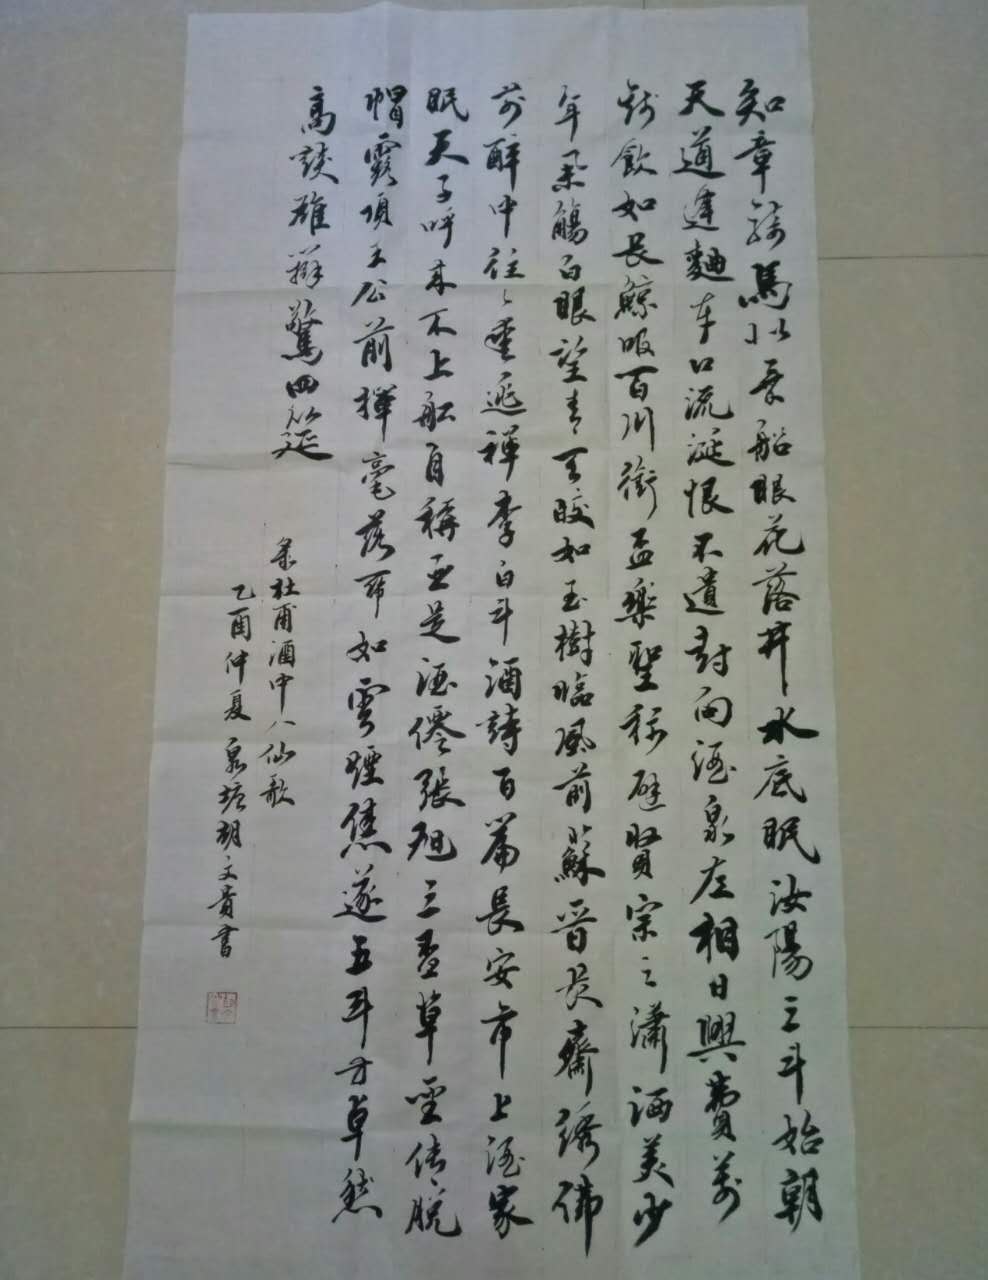 知章騎馬似乗船眼花落井水底眠汝陽三斗始朝
天道逢麯車口流涎恨不遺封向酒泉左相日興費萬
錢飲如長鯨吸百川銜盃樂聖称避賢宗之瀟洒美少
年舉觴白眼望青天皎如玉樹臨風前蘇晉長齋綉佛
前醉中往々愛逃禅李白斗酒詩百篇長安市上酒家
眠天子呼来不上船自稱臣是酒僊張旭三盃草聖传脱
帽露頂王公前揮毫落帋如雲煙焦遂五斗方卓然
高談雄辯驚四筵
杜甫酒中八仙歌
乙酉仲夏泉塘胡文貴書